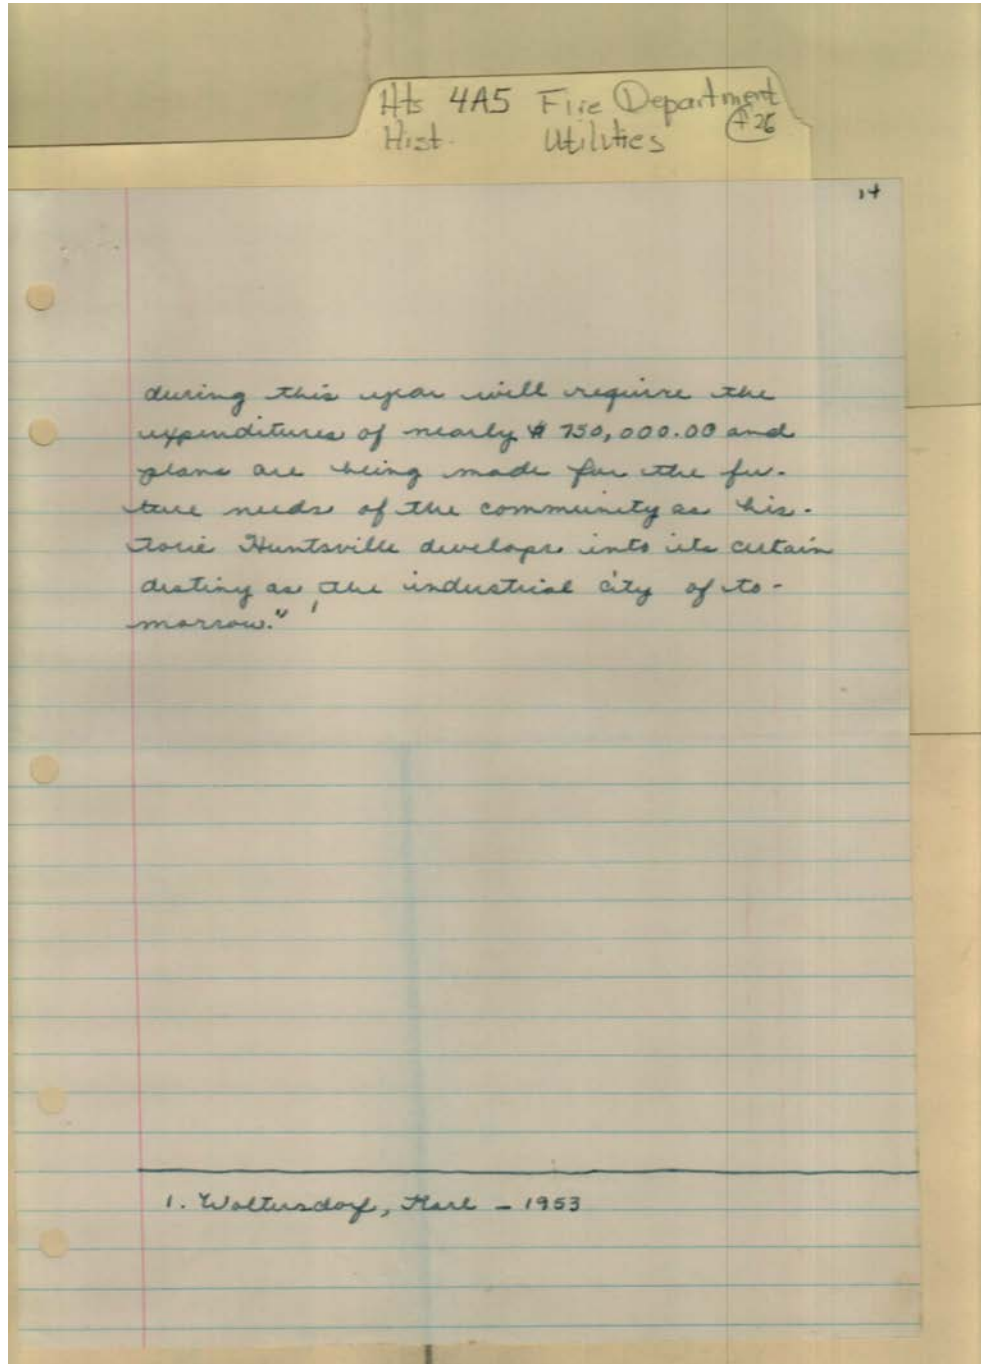 Hts 4A5 Fire Department
Hist. Utilities +26
14
during this year will require the
expenditures of nearly $ 750,000.00 and
plans are being made for the fu-
ture needs of the community as his-
toric Huntsville develops into its certain
destiny as the industrial city of to-
morrow." 1
1. Woltersdorf, Karl - 1953